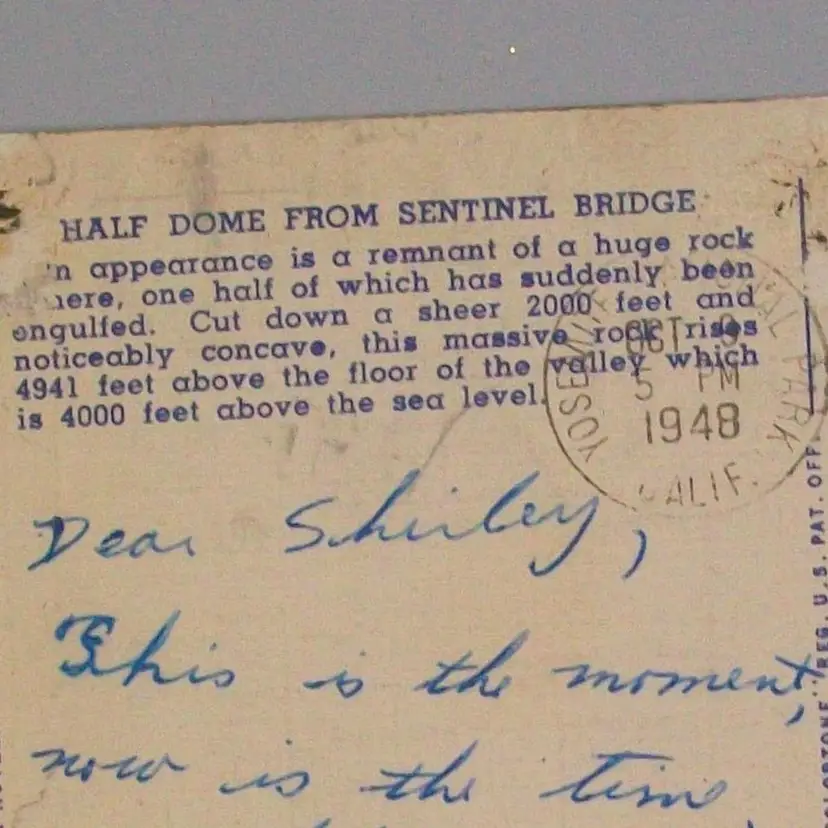 HALF DOME FROM SENTINEL BRIDGE
'n appearance is a remnant of a huge rock
here, one half of which has suddenly been
engulfed. Cut down a sheer 2000 feet and
noticeably concave, this massive rock rises
4941 feet above the floor of the valley which
is 4000 feet above the sea level.
YOSEMITE NATIONAL PARK
OCT 9
5 PM
1948
CALIF.
Dear Shirley,
This is the moment,
now is the time
REG. U.S. PAT. OFF.